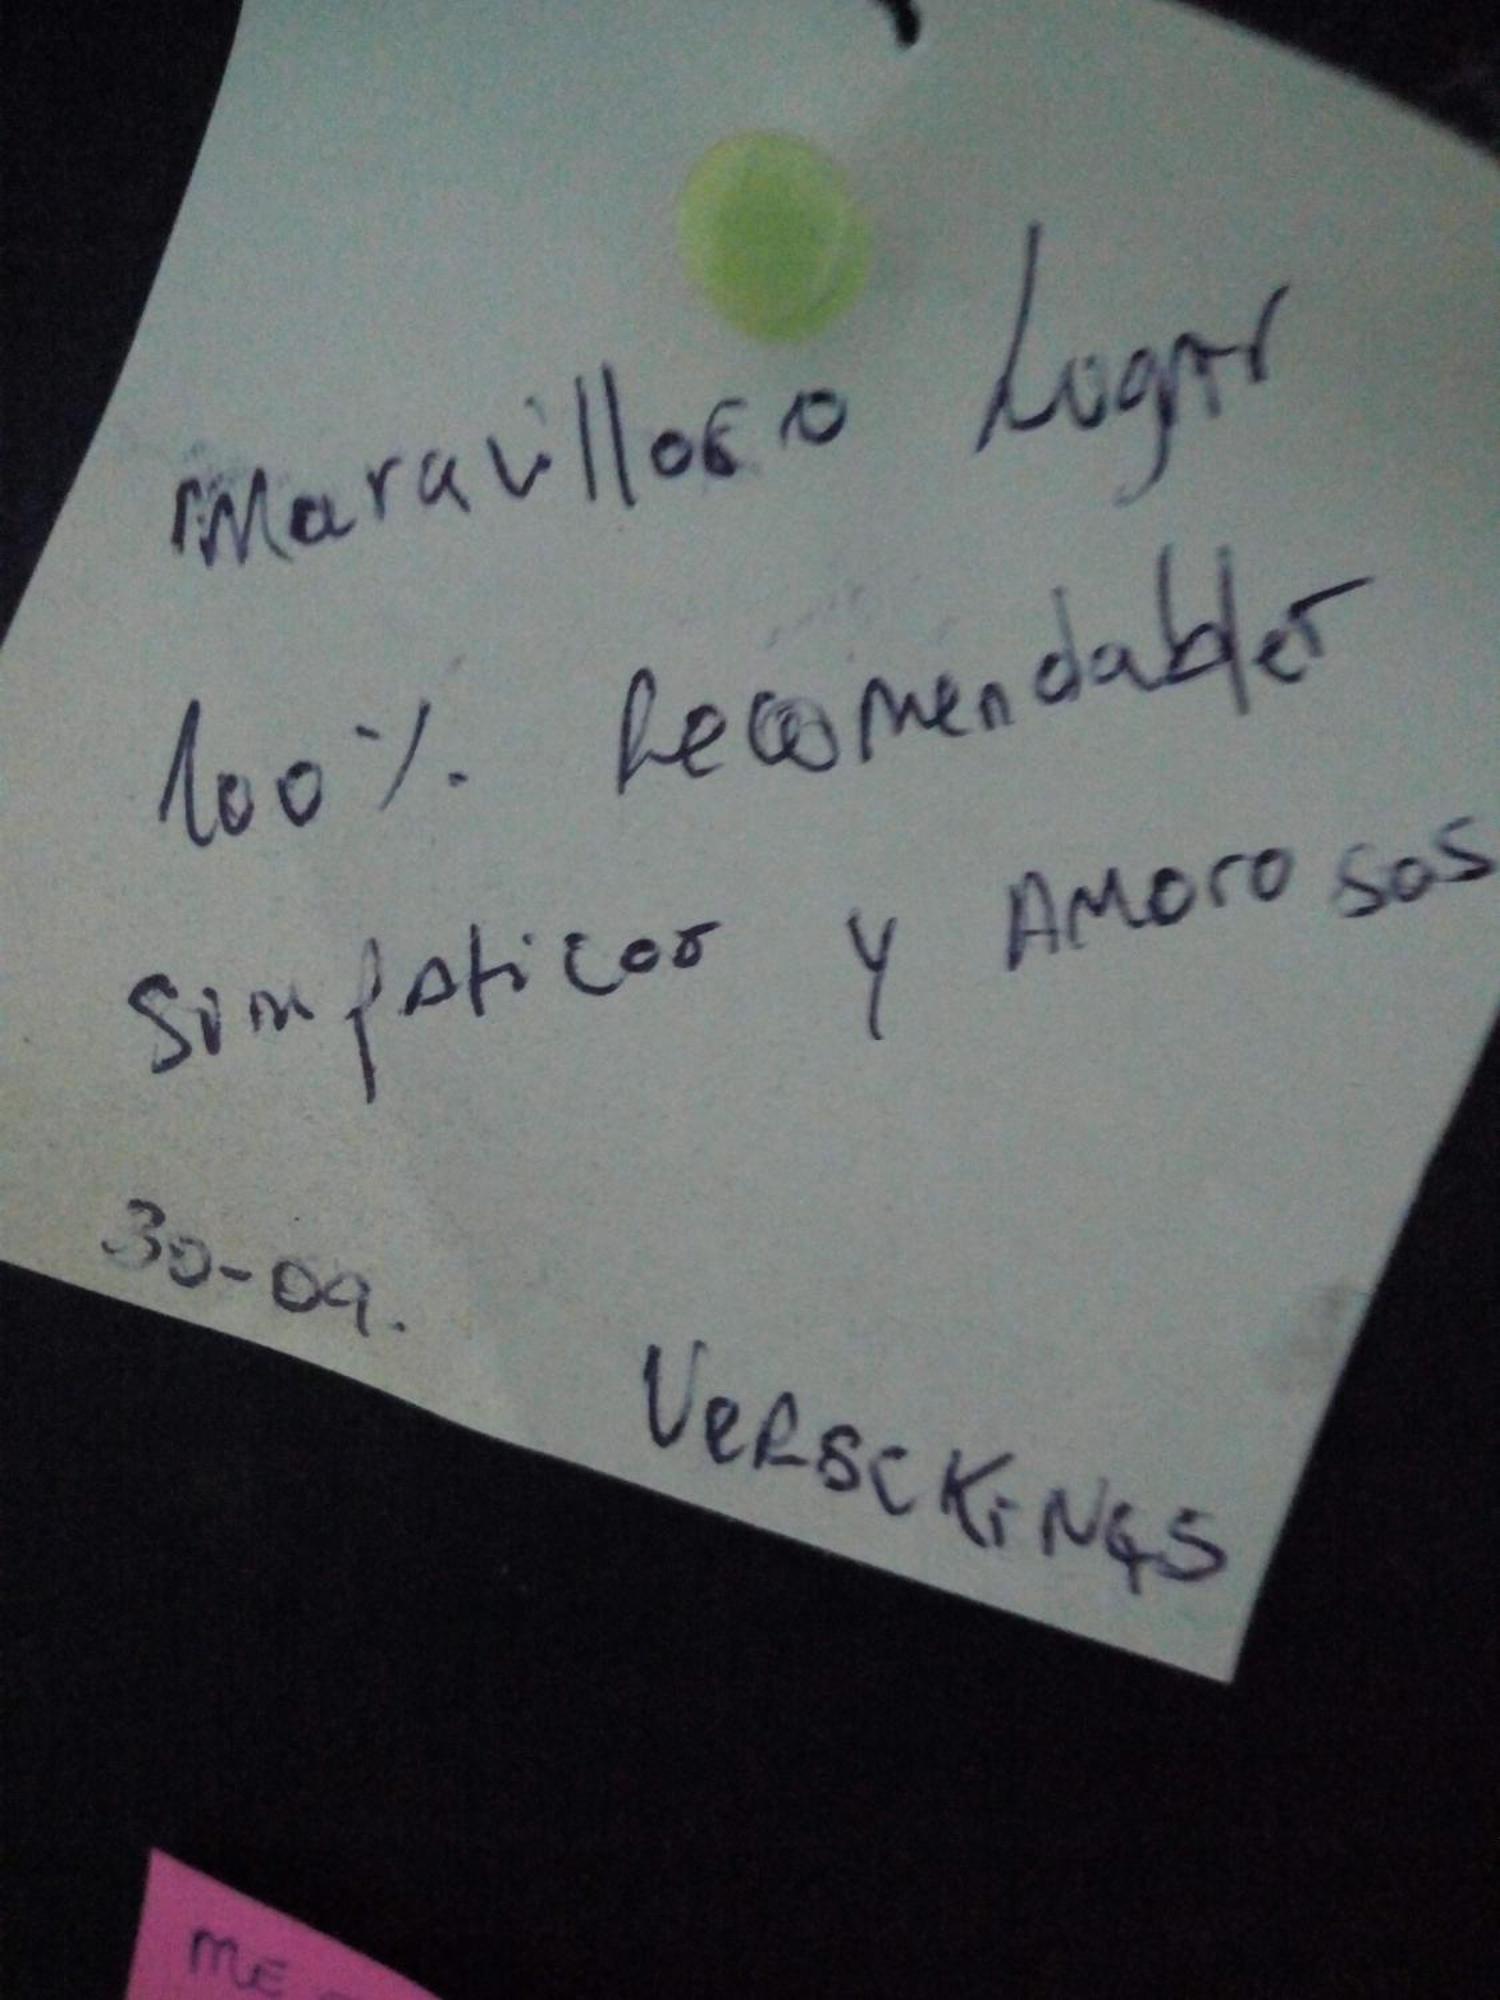 Maravilloso Lugar
100% Recomendables
Simpaticos y Amorosos
30-09.
VeRSCKiNGS
ME